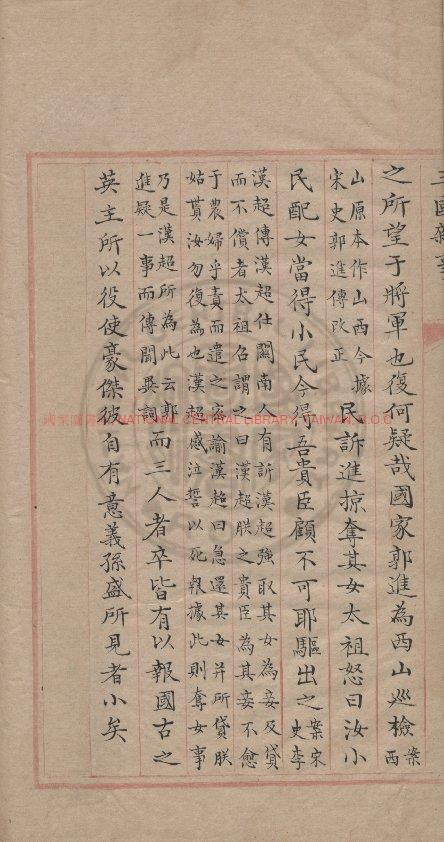 三國雜事
之所望于將軍也復何疑哉國家郭進為西山巡檢案西
山原本作山西今據宋史郭進傳改正民訴進掠奪其女太祖怒曰汝小
民配女當得小民今得吾貴臣顧不可耶驅出之案宋史李
漢超傳漢超仕關南人有訴漢超強取其女為妾及貸
而不償者太祖召謂之曰漢超朕之貴臣為其妾不愈
于農婦乎責而遣之密諭漢超曰急還其女并所貸朕
姑貰汝勿復為也漢超感泣誓以死報據此則奪女事
乃是漢超所為此云郭進疑一事而傳聞異詞而三人者卒皆有以報國古之
英主所以役使豪傑彼自有意義孫盛所見者小矣
NATIONAL CENTRAL LIBRARY, TAIWAN, R.O.C